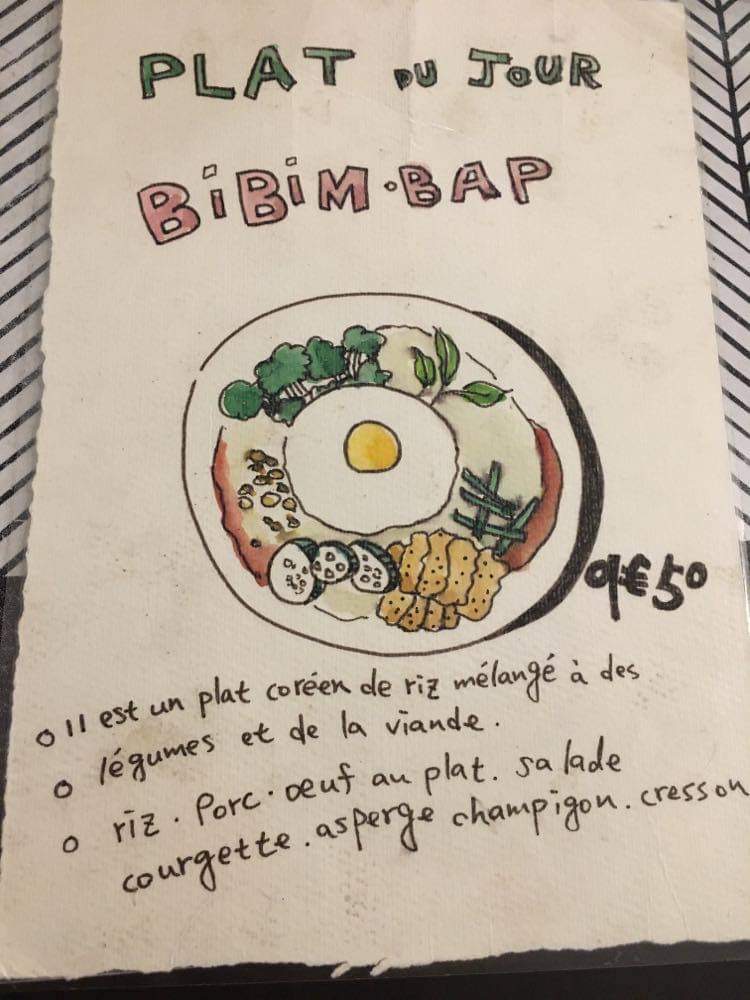 PLAT DU JOUR
BiBiM·BAP
9€50
o Il est un plat coréen de riz mélangé à des
o légumes et de la viande.
o riz. Porc. oeuf au plat. salade
courgette. asperge champigon. cresson